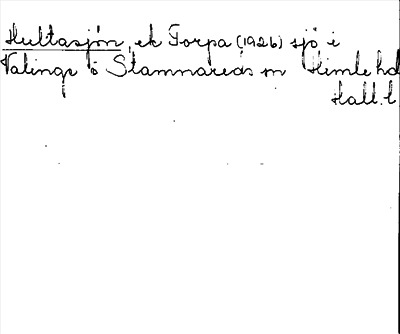 Hultasjön, ek Torpa (1926) sjö i
Valinge o Stamnareds sn Himle hd
Hall. l